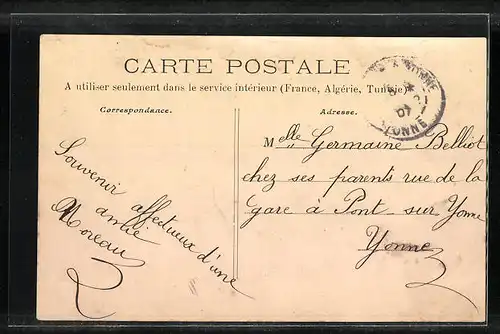 CARTE POSTALE
A utiliser seulement dans le service intérieur (France, Algérie, Tunisie)
Correspondance.
Adresse.
Souvenir affectueux d'une
amie
Moreau
Melle Germaine Belliot
chez ses parents rue de la
gare à Pont sur Yonne
Yonne
YONNE
YONNE